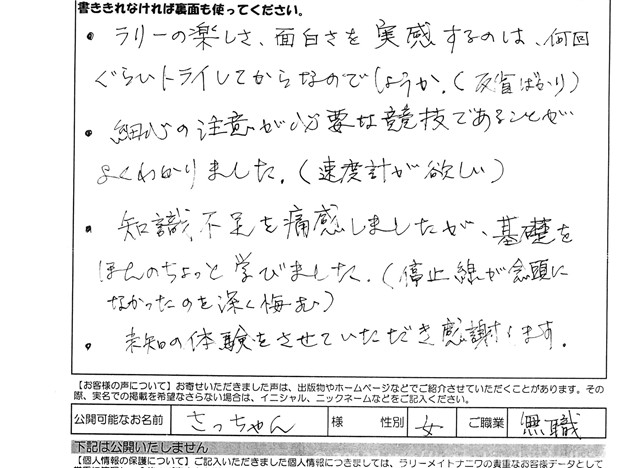 書ききれなければ裏面も使ってください。
・ラリーの楽しさ、面白さを実感するのは、何回
ぐらいトライしてからなのでしょうか。(反省ばかり)
・細心の注意が必要な競技であることが
よくわかりました。(速度計が欲しい)
・知識不足を痛感しましたが、基礎を
ほんのちょっと学びました。(停止線が念頭に
なかったのを深く悔む)
・未知の体験をさせていただき感謝します。
【お客様の声について】お寄せいただきました声は、出版物やホームページなどでご紹介させていただくことがあります。その
際、実名での掲載を希望なさらない場合は、イニシャル、ニックネームなどをご記入ください。
公開可能なお名前 さっちゃん 様 性別 女 ご職業 無職
下記は公開いたしません
【個人情報の保護について】ご記入いただきました個人情報につきましては、ラリーメイトナニワの貴重なお客様データとして